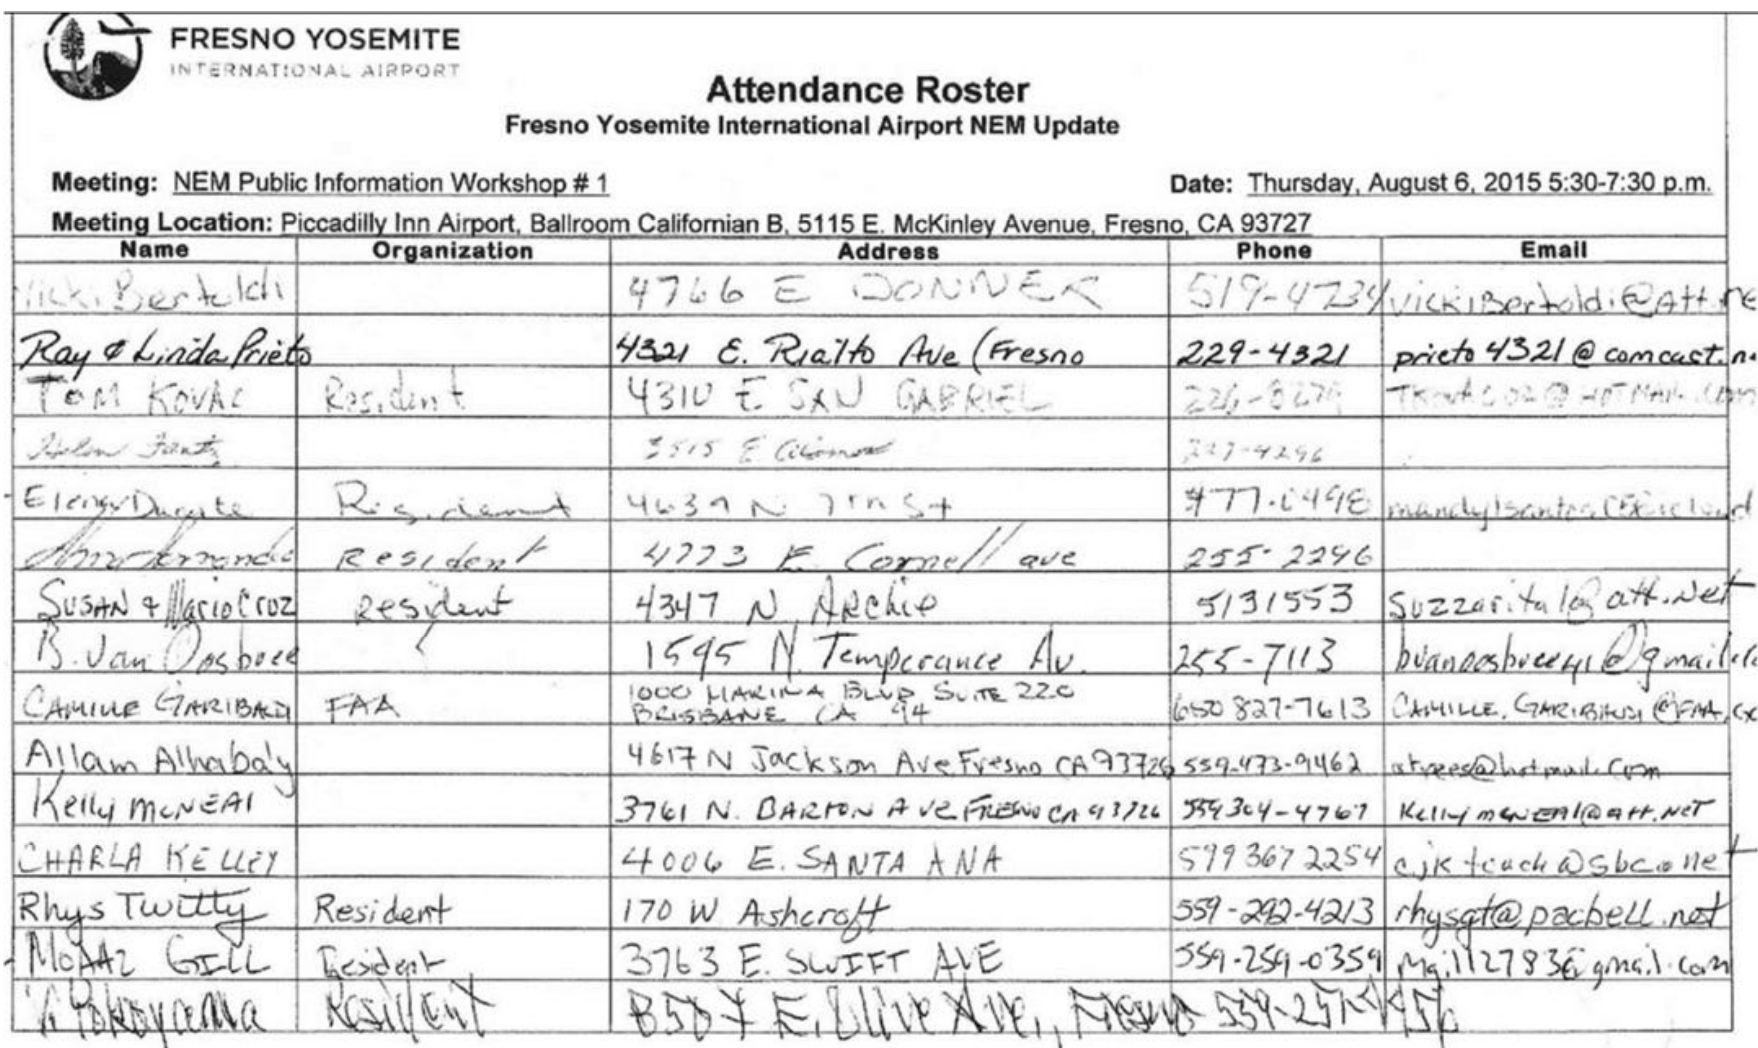 FRESNO YOSEMITE
INTERNATIONAL AIRPORT
Attendance Roster
Fresno Yosemite International Airport NEM Update
Meeting: NEM Public Information Workshop # 1 Date: Thursday, August 6, 2015 5:30-7:30 p.m.
Meeting Location: Piccadilly Inn Airport, Ballroom Californian B, 5115 E. McKinley Avenue, Fresno, CA 93727
Name Organization Address Phone Email
Vicki Bertoldi 4766 E DONNER 519-4734 VickiBertoldi@Att.ne
Ray & Linda Prieto 4321 E. Rialto Ave (Fresno 229-4321 prieto4321@comcast.n
TOM KOVAC Resident 4310 E SAN GABRIEL
Helen 227-4296
Resident 4639 N 7th St
Resident 4773 E. Cornell ave 255-2296
SUSAN & Mario Cruz Resident 4347 N Archie 5131553 @att.Net
B. Van 1595 N. Temperance Av. 255-7113
CAMILLE GARIBALDI FAA 1000 MARINA BLVD SUITE 220 650 827-7613 CAMILLE.GARIBALDI@FAA.
BRISBANE CA 94
Allam Alhabaly 4617 N Jackson Ave Fresno CA 93726 559-473-9462 @hotmail.com
Kelly McNEAl 3761 N. BARTON AVE FRESNO CA 93726 559 304-4767 KellyMcNEAl@att.NET
CHARLA KELLEY 4006 E. SANTA ANA 599 367 2254 cjkteach@sbc.net
Rhys Twitty Resident 170 W Ashcroft 559-292-4213 rhysgt@pacbell.net
GILL Resident 3763 E. SWIFT AVE 559-259-0359 Mgill12783@gmail.com
Yokoyama Resident E. Olive Ave., Fresno